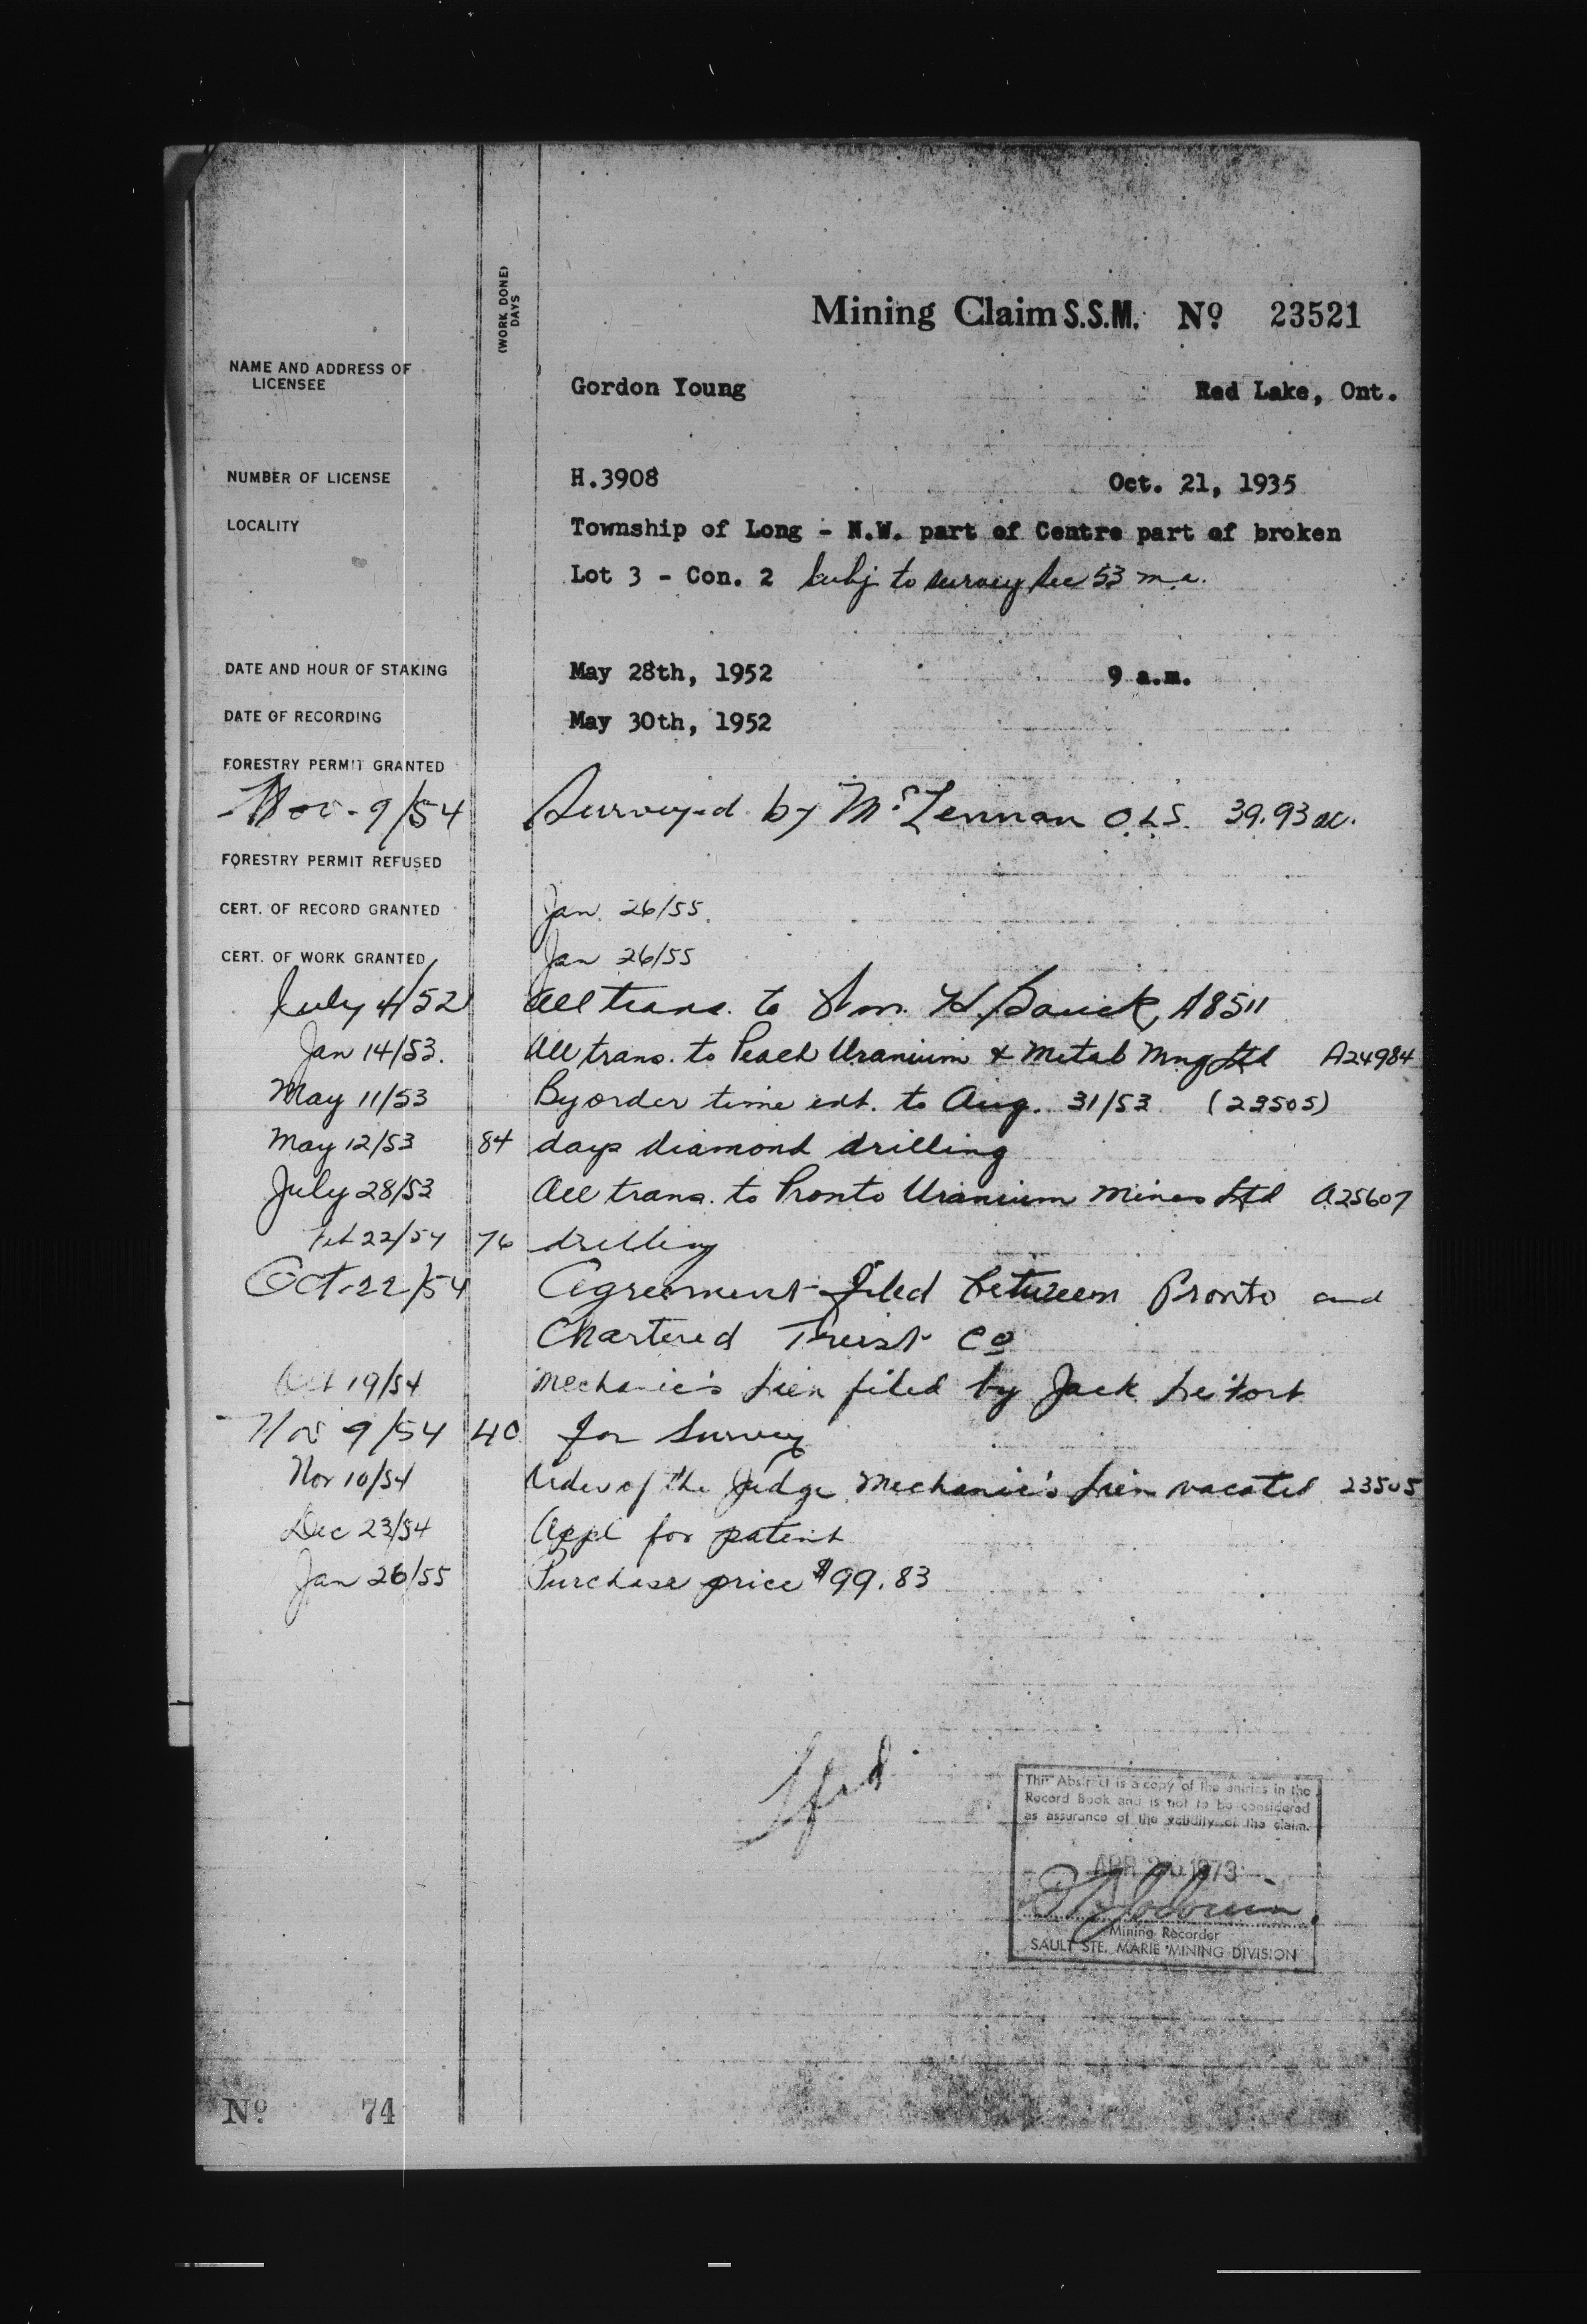 (WORK DONE)
DAYS
Mining Claim S.S.M. Nº 23521
NAME AND ADDRESS OF
LICENSEE
Gordon Young Red Lake, Ont.
NUMBER OF LICENSE H.3908 Oct. 21, 1935
LOCALITY Township of Long - N.W. part of Centre part of broken
Lot 3 - Con. 2 Subj to survey Sec 53 m.a.
DATE AND HOUR OF STAKING May 28th, 1952 9 a.m.
DATE OF RECORDING May 30th, 1952
FORESTRY PERMIT GRANTED
Nov - 9/54 Surveyed by McLennan O.L.S. 39.93 ac.
FORESTRY PERMIT REFUSED
CERT. OF RECORD GRANTED Jan. 26/55.
CERT. OF WORK GRANTED Jan 26/55
July 4/52 All trans. to Wm. H. A8511
Jan 14/53. All trans. to Peach Uranium & Metal Mng Ltd A24984
May 11/53 By order time ext. to Aug. 31/53 (23505)
May 12/53 84 days diamond drilling
July 28/53 All trans. to Pronto Uranium Mines Ltd A25607
Feb 22/54 76 drilling
Oct-22/54 Agreement filed between Pronto and
Chartered Trust Co
Oct 19/54 Mechanic's Lien filed by Jack
Nov 9/54 40 for Survey
Nov 10/54 Order of the Judge Mechanic's Lien vacated 23505
Dec 23/54 Appl for patent
Jan 26/55 Purchase price $99.83
This Abstract is a copy of the entries in the
Record Book and is not to be considered
as assurance of the validity of the claim.
APR 1973
Mining Recorder
SAULT STE. MARIE MINING DIVISION
Nº 74